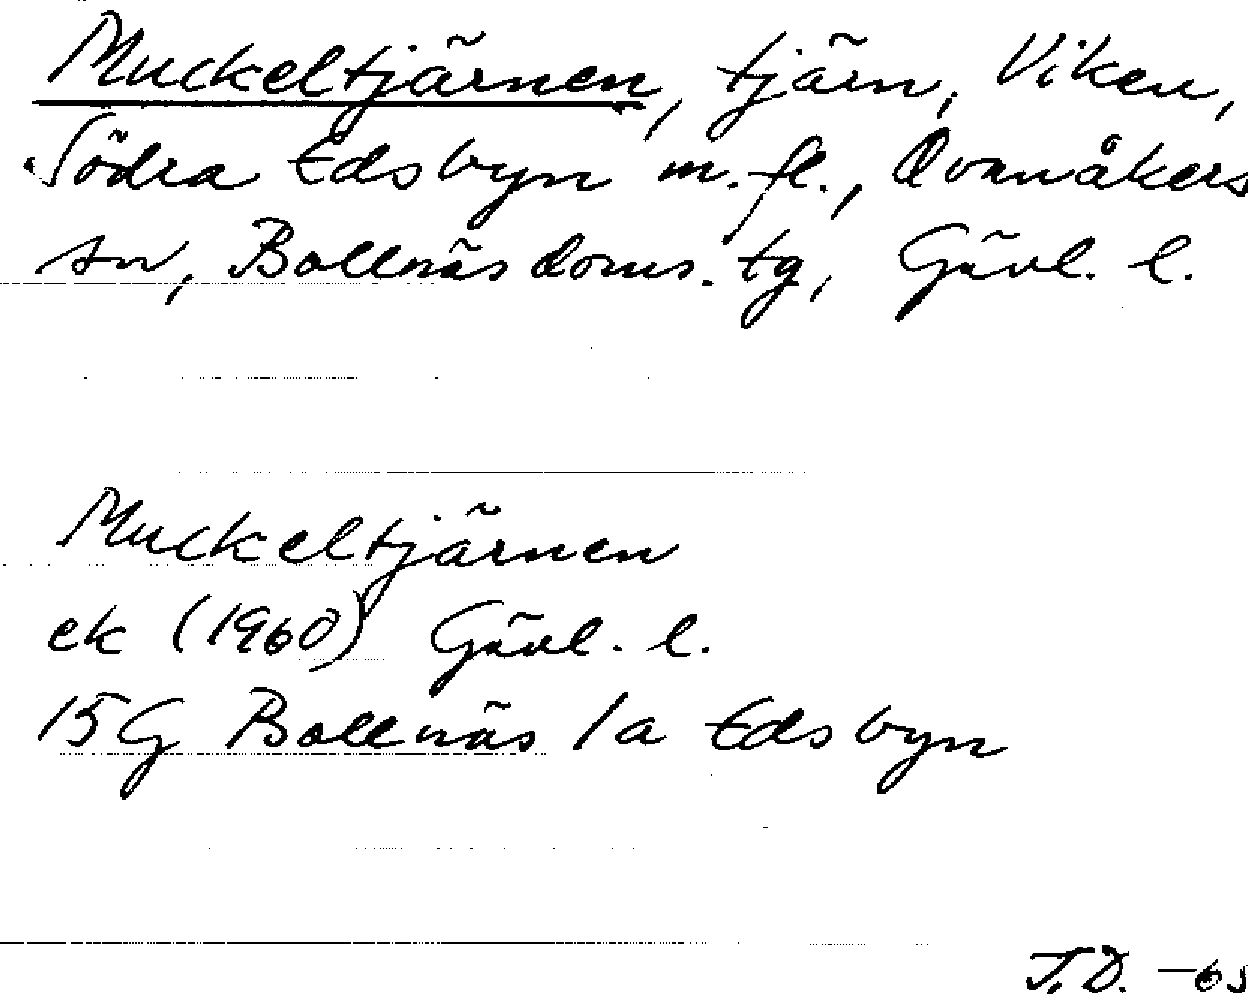 Muckeltjärnen, tjärn, Viken,
Södra Edsbyn m. fl., Ovanåkers
sn, Bollnäs doms. tg, Gävl. l.
Muckeltjärnen
ek (1960) Gävl. l.
15G Bollnäs 1a Edsbyn
T.D. -65